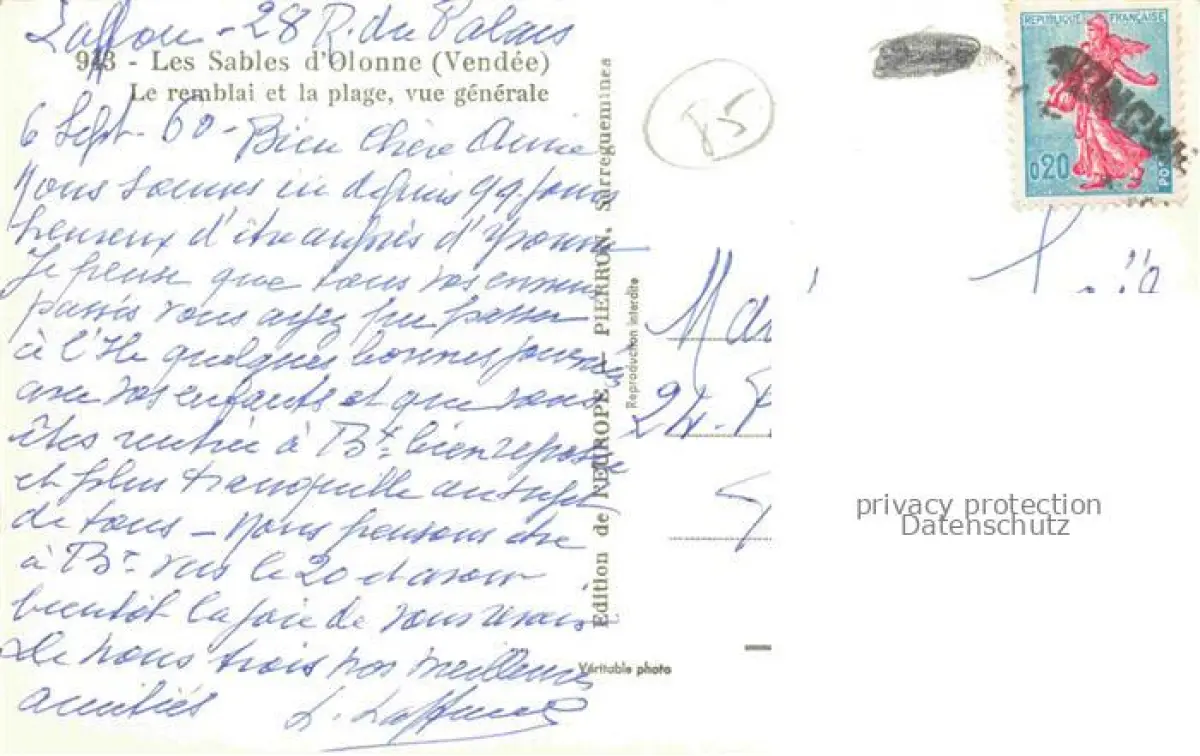 28 R. du Palais
943 - Les Sables d'Olonne (Vendée)
Le remblai et la plage, vue générale
6 Sept. 60 - Bien Chère Amie
Nous sommes ici depuis 99 jours
heureux d'être auprès d'Yvonne
Je pense que tous vos ennuis
passés vous ayez pu passer
à l'Ile quelques bonnes journées
avec vos enfants et que vous
êtes rentrée à Bx bien reposée
et plus tranquille au sujet
de tous - Nous pensons être
à Bx vers le 20 et avoir
bientôt la joie de vous revoir
De nous trois nos meilleures
amitiés
Edition de l'EUROPE - PIERRON, Sarreguemines
Reproduction interdite
Véritable photo
85
REPUBLIQUE FRANÇAISE
0,20
24
privacy protection
Datenschutz